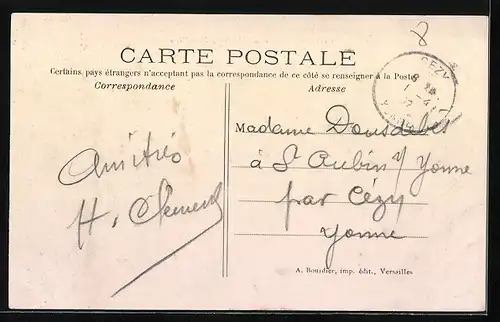 8
CARTE POSTALE
Certains pays étrangers n'acceptant pas la correspondance de ce côté se renseigner à la Poste
Correspondance
Adresse
CEZY
YONNE
Amitiés
H. Clement
Madame
à St Aubin s/ Yonne
par Cézy
Yonne
A. Bourdier, imp. édit., Versailles